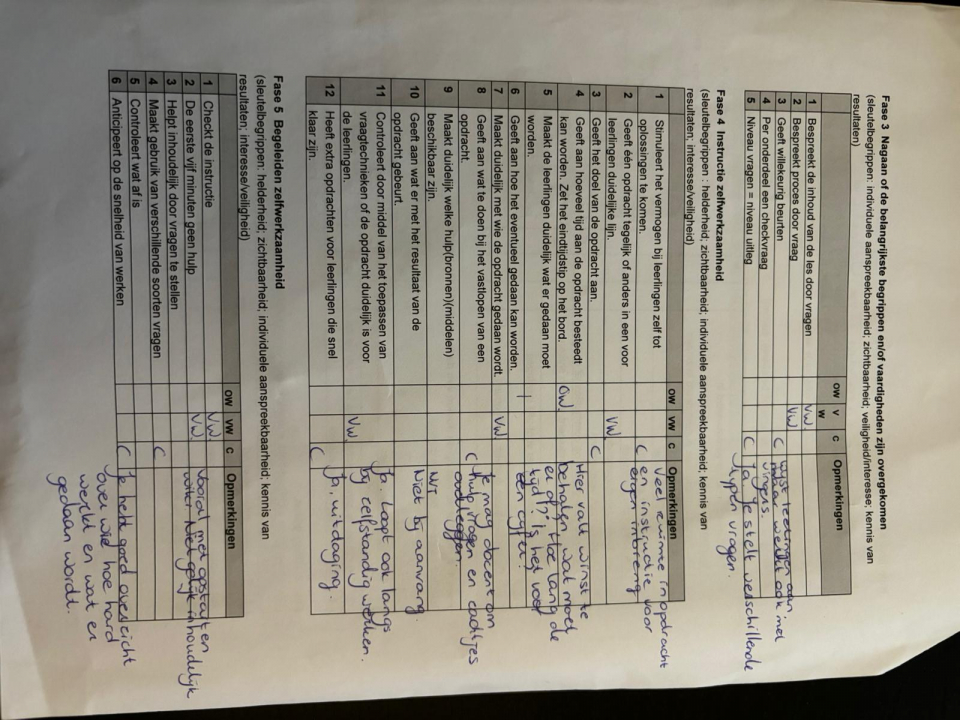 Fase 3 Nagaan of de belangrijkste begrippen en/of vaardigheden zijn overgekomen
(sleutelbegrippen: individuele aanspreekbaarheid; zichtbaarheid; veiligheid/interesse; kennis van
resultaten)
ow v w c Opmerkingen
1 Bespreekt de inhoud van de les door vragen VW
2 Bespreekt proces door vraag VW
3 Geeft willekeurig beurten C wijst leerlingen aan
maar werkt ook met
vingers.
4 Per onderdeel een checkvraag
5 Niveau vragen = niveau uitleg C Ja, je stelt verschillende
typen vragen.
Fase 4 Instructie zelfwerkzaamheid
(sleutelbegrippen : helderheid; zichtbaarheid; individuele aanspreekbaarheid; kennis van
resultaten; interesse/veiligheid)
ow vw c Opmerkingen
1 Stimuleert het vermogen bij leerlingen zelf tot
oplossingen te komen. C Veel ruimte in opdracht
en instructie voor
eigen inbreng
2 Geeft één opdracht tegelijk of anders in een voor
leerlingen duidelijke lijn. VW
3 Geeft het doel van de opdracht aan. C
4 Geeft aan hoeveel tijd aan de opdracht besteedt
kan worden. Zet het eindtijdstip op het bord. OW Hier valt winst te
behalen, wat moet
5 Maakt de leerlingen duidelijk wat er gedaan moet
worden.
6 Geeft aan hoe het eventueel gedaan kan worden. |
7 Maakt duidelijk met wie de opdracht gedaan wordt. VW
8 Geeft aan wat te doen bij het vastlopen van een
opdracht. C Je mag docent om
hulp vragen en
9 Maakt duidelijk welke hulp(bronnen)(middelen)
beschikbaar zijn.
10 Geeft aan wat er met het resultaat van de
opdracht gebeurt. Niet bij aanvang.
11 Controleert door middel van het toepassen van
vraagtechnieken of de opdracht duidelijk is voor
de leerlingen. VW Ja. Loopt ook langs
bij zelfstandig werken.
12 Heeft extra opdrachten voor leerlingen die snel
klaar zijn. C Ja, uitdaging.
Fase 5 Begeleiden zelfwerkzaamheid
(sleutelbegrippen: helderheid; zichtbaarheid; individuele aanspreekbaarheid; kennis van
resultaten; interesse/veiligheid)
ow vw c Opmerkingen
1 Checkt de instructie VW
2 De eerste vijf minuten geen hulp VW
3 Helpt inhoudelijk door vragen te stellen
4 Maakt gebruik van verschillende soorten vragen C
5 Controleert wat af is
6 Anticipeert op de snelheid van werken C Je hebt goed overzicht
over wie hoe hard
werkt en wat er
gedaan wordt.